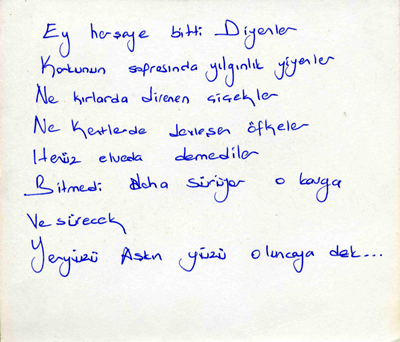 Ey herşeye bitti Diyenler
Korkunun sofrasında yılgınlık yiyenler
Ne kırlarda direnen çiçekler
Ne Kentlerde devleşen öfkeler
Henüz elveda demediler
Bitmedi daha sürüyor o kavga
Ve sürecek
Yeryüzü Aşkın yüzü oluncaya dek...